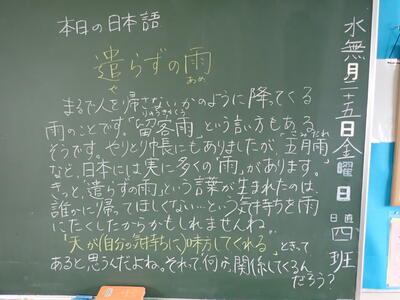 本日の日本語
遣らずの雨
や
あめ
まるで人を帰さないかのように降ってくる
りゅうきゃくう
雨のことです。「留客雨」という言い方もある
さみだれ
そうです。やりとり帳にもありましたが、「五月雨」
など、日本には実に多くの「雨」があります。
きっと、「遣らずの雨」という言葉が生まれたのは、
誰かに帰ってほしくない…という気持ちを雨
にたくしたからかもしれませんね。
「天が(自分の気持ちに)味方してくれる」ときって
あると思うんだよね。それって何が関係してくるん
だろう?
水無月二十五日金曜日
日直四班